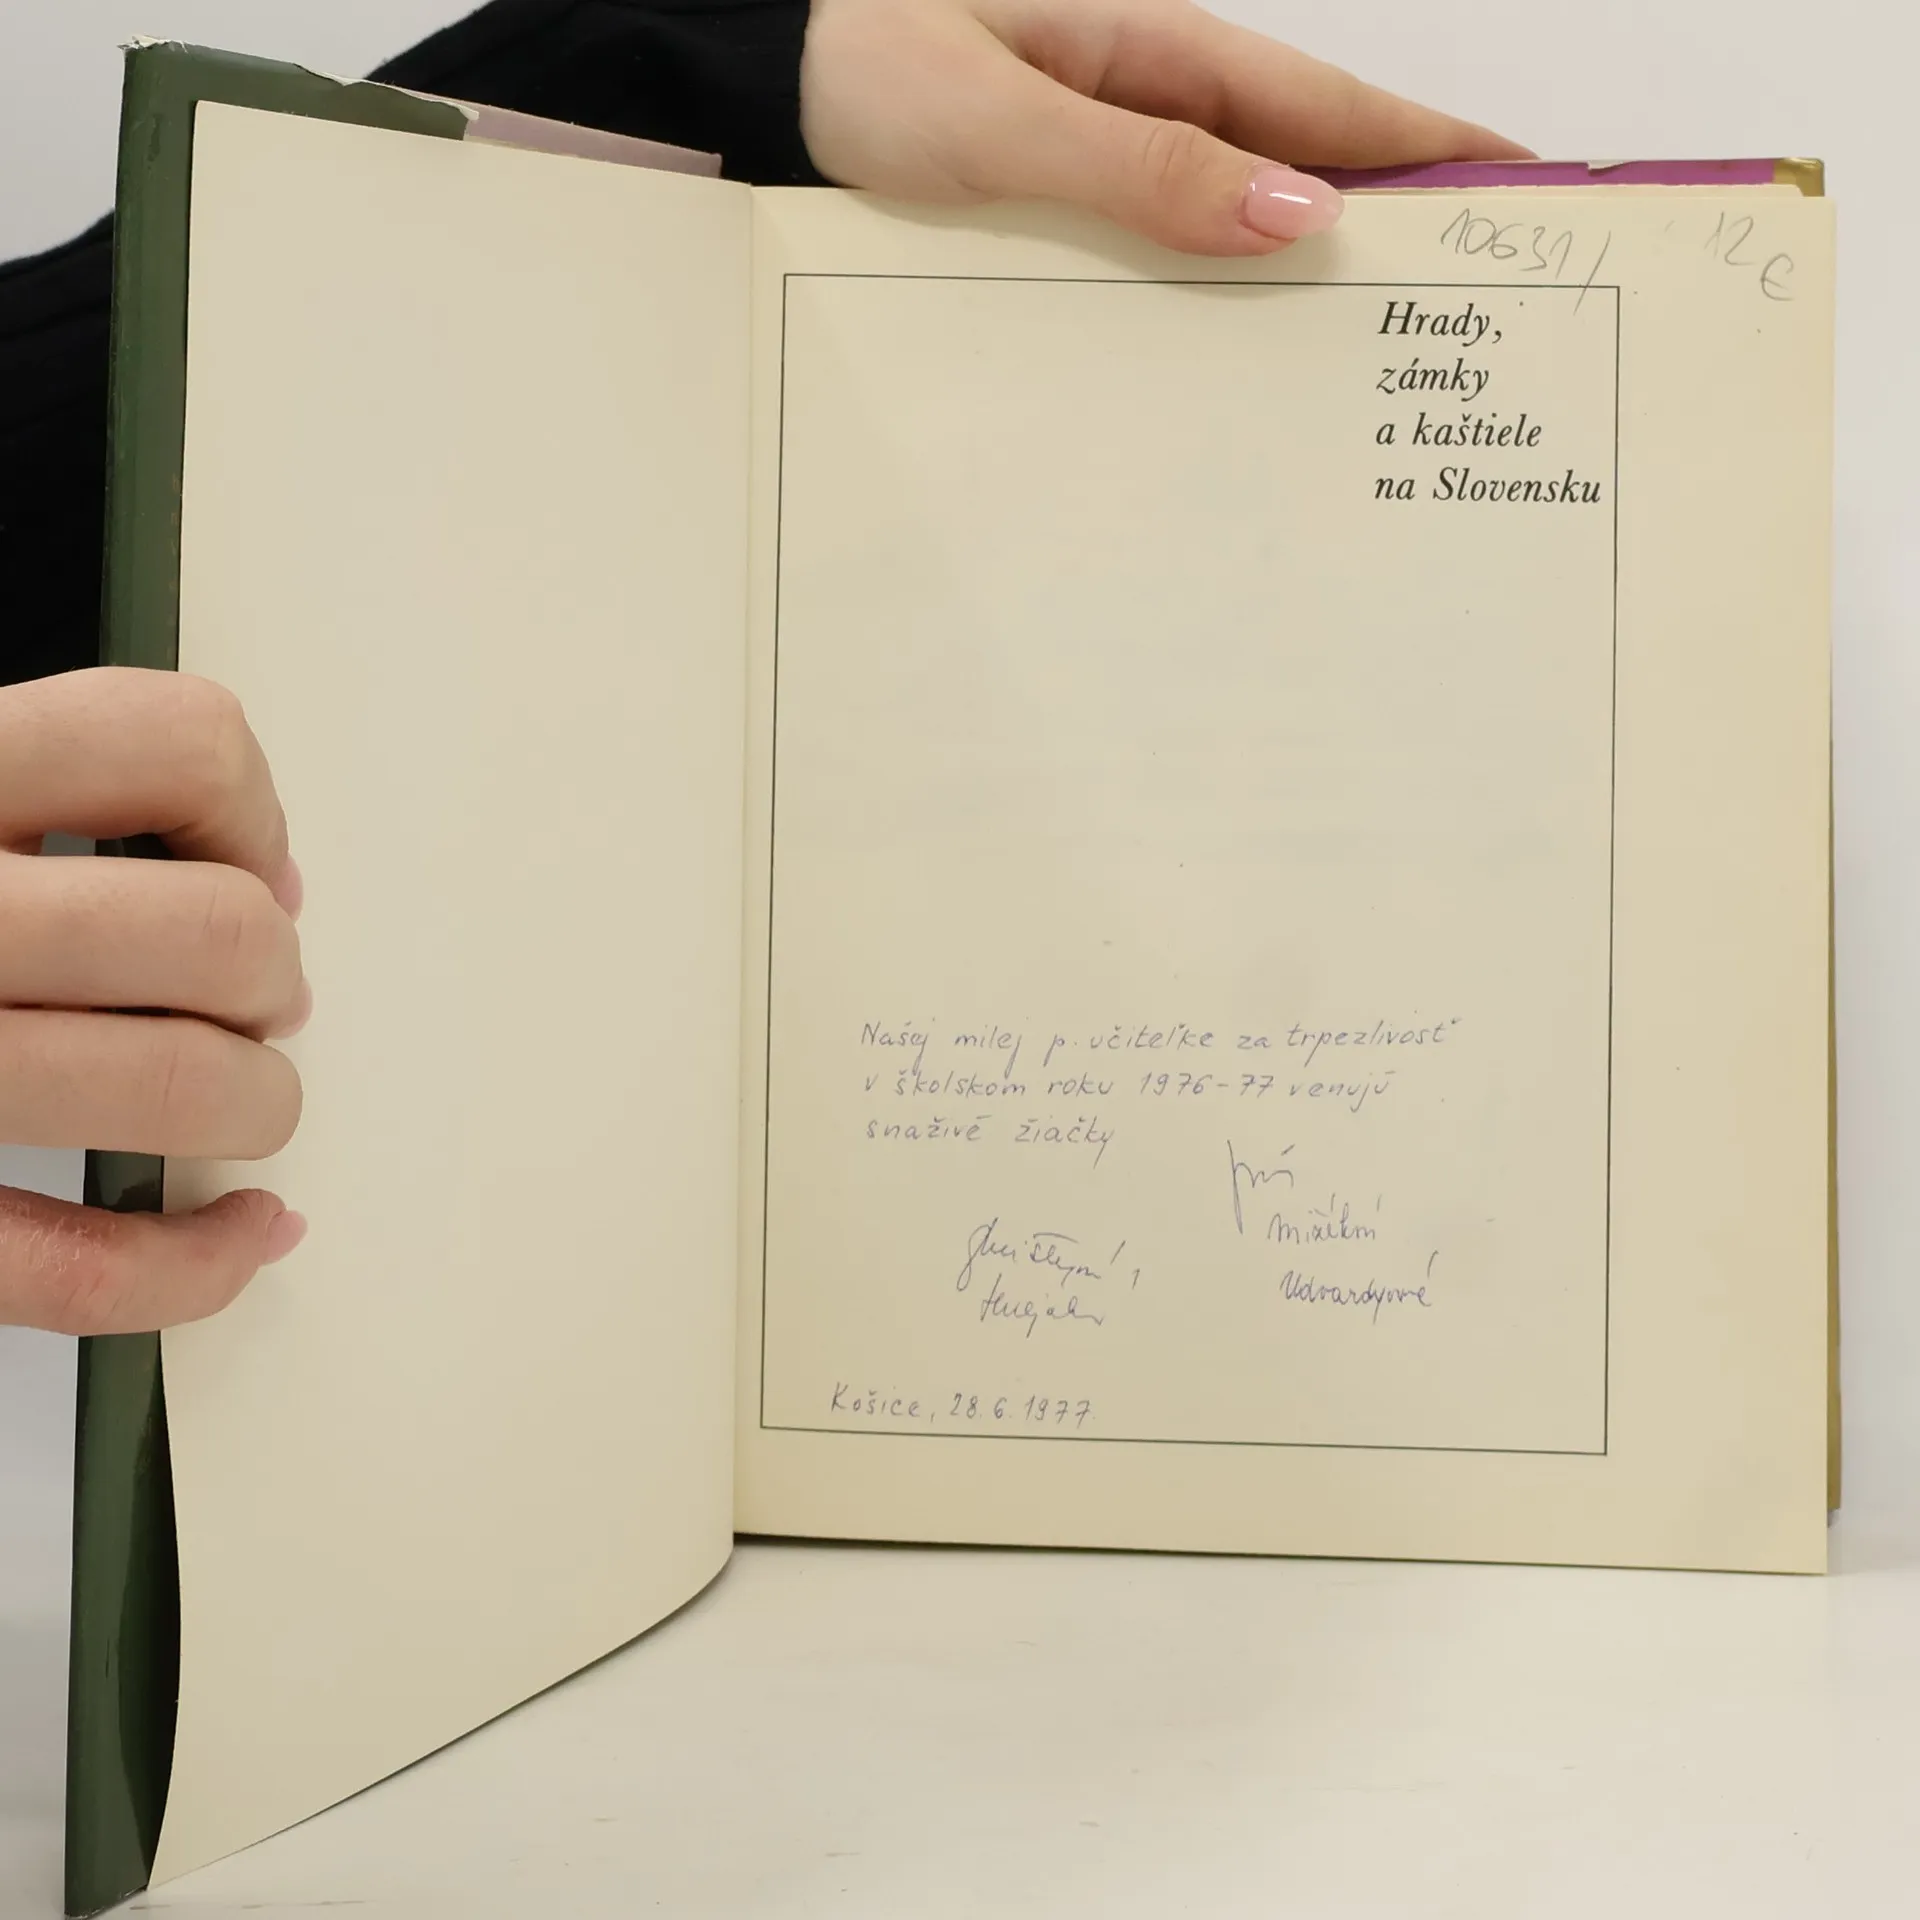 10631/ 12 €
Hrady,
zámky
a kaštiele
na Slovensku
Našej milej p. učiteľke za trpezlivosť
v školskom roku 1976-77 venujú
snaživé žiačky
Udvardyová
Košice, 28.6.1977.